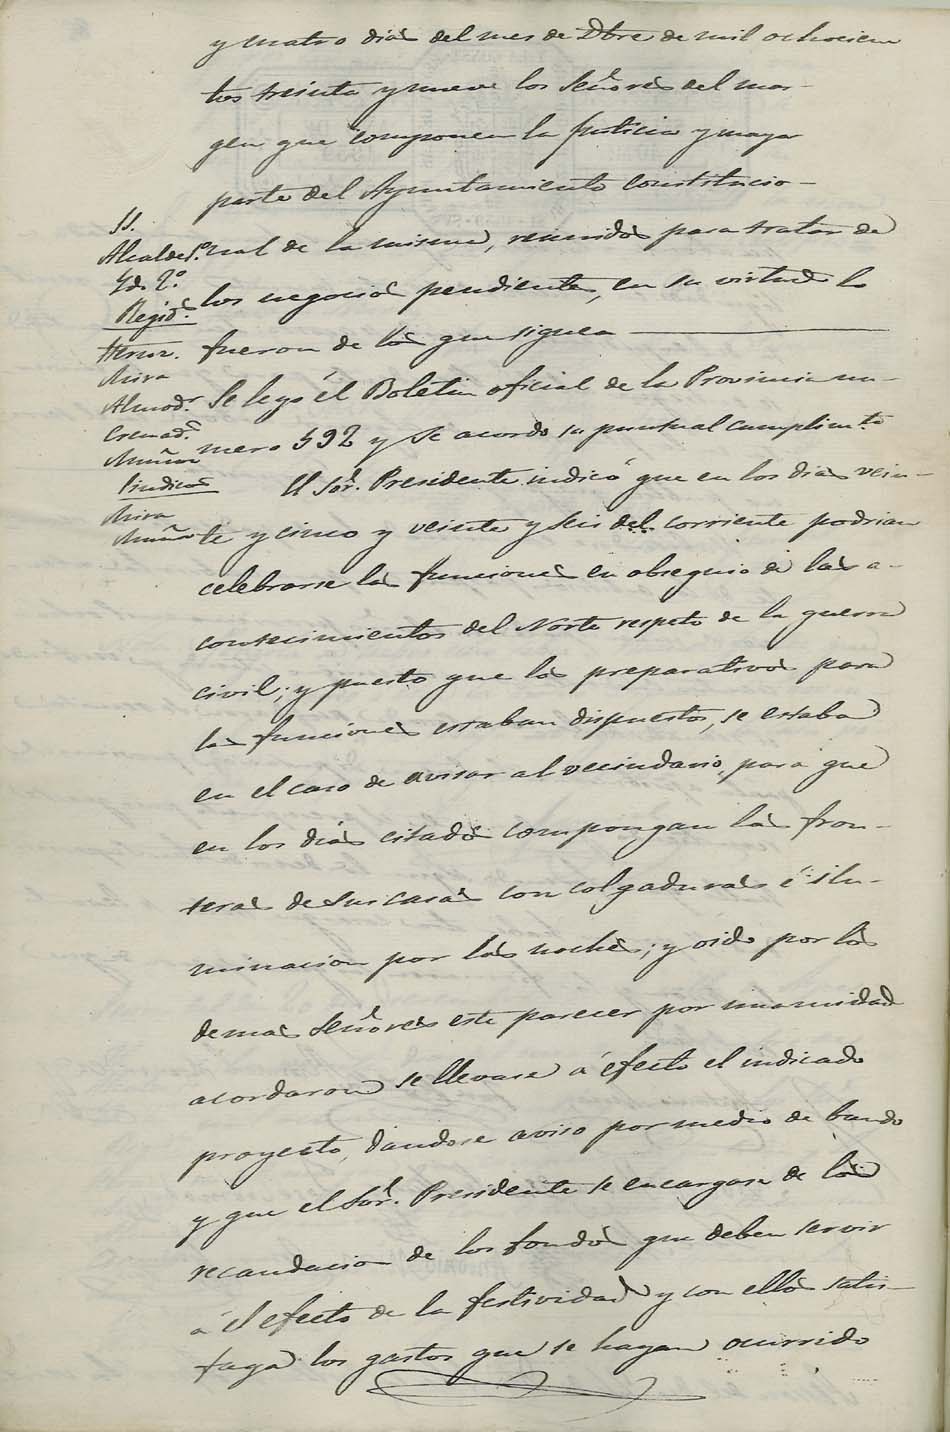 y cuatro dias del mes de Dbre de mil ochocien
tos treinta y nueve los Señores del mar-
gen que componen la Justicia y mayor
parte del Ayuntamiento Constitucio-
nal de la misma, reunidos para tratar de
los negocios pendientes, en su virtud lo
fueron de los que siguen
Se leyó el Boletin oficial de la Provincia nu-
mero 592 y se acordo su puntual cumplimto
El Sor. Presidente indicó que en los dias vein-
te y cinco y veinte y seis del corriente podrian
celebrarse las funciones en obsequio de los a-
contecimientos del Norte respeto de la guerra
civil; y puesto que los preparativos para
las funciones estaban dispuestos, se estaba
en el caso de avisar al vecindario, para que
en los dias citados compongan las fron-
teras de sus casas con colgaduras é ilu-
minacion por las noches; y oido por los
demas Señores este parecer por unanimidad
acordaron se llevase á efecto el indicado
proyecto, dandose aviso por medio de bando
y que el Sor. Presidente se encargase de la
recaudacion de los fondos que deben servir
á el efecto de la festividad y con ellos satis-
faga los gastos que se hayan ocurrido
SS.
Alcalde 1º.
Ydo 2º
Regids.
Mira
Almodr.
Cremads.
Muñoz
Sindicos
Mira
Muñoz